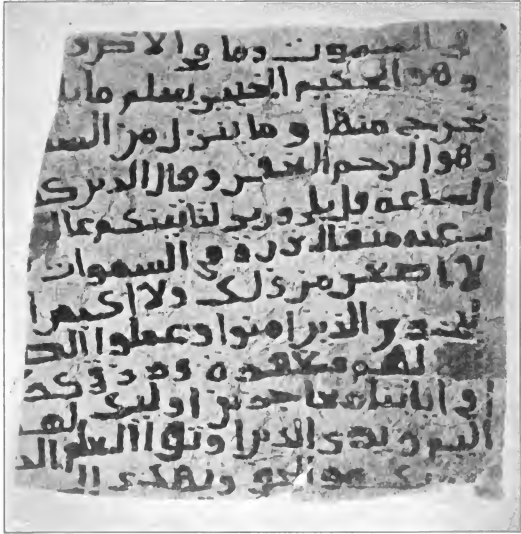 في السموت وما في الارض و
وهو الحكيم الخبير يعلم ما يلـ
يخرج منها و ما ينزل من السمـ
وهو الرحيم الغفور وقال الذين كـ
الساعه قل بلى وربي لتاتينكم عالـ
ـب عنه مثقال ذره في السموات
لا اصغر من ذلك ولا اكبر ا
ليجزي الذين امنوا وعملوا الصـ
لهم مغفره ورزق كـ
اياتنا معاجزين اوليك لهـ
اليم ويرى الذين اوتوا العلم الذ
ـك هو الحق ويهدي الى